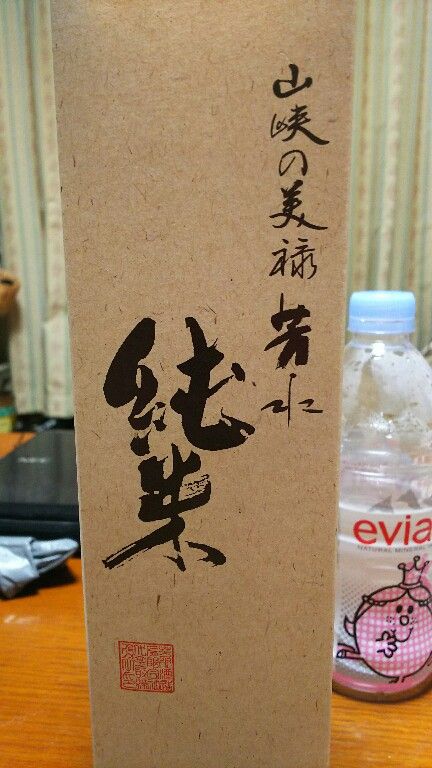 山峡の美禄 芳水
純米
evia
NATURAL MINERAL